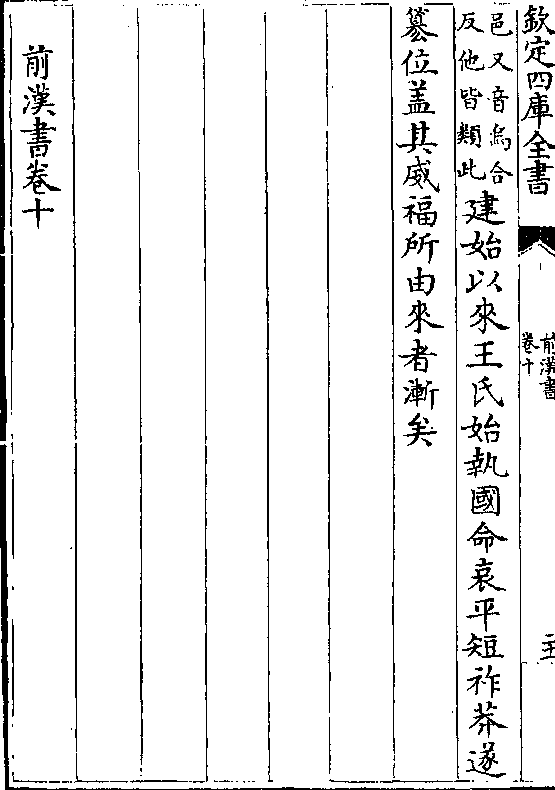 欽定四庫全書
前漢書
卷十
邑又音烏合
反他皆類此
建始以來王氏始執國命哀平短祚莽遂
簒位盖其威福所由來者漸矣
前漢書卷十